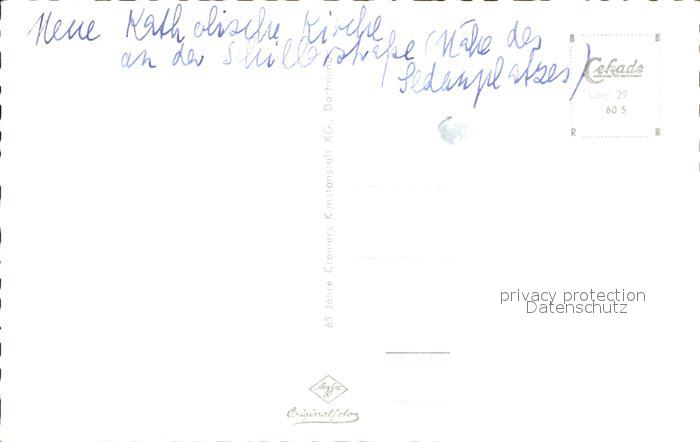 Neue Katholische Kirche
an der Schillerstraße (Nähe des
Sedanplatzes)
B B
Cekade
Lag 29
60 5
R B
60 Jahre Cramers Kunstanstalt KG., Dortmund
privacy protection
Datenschutz
Agfa
Originalfoto